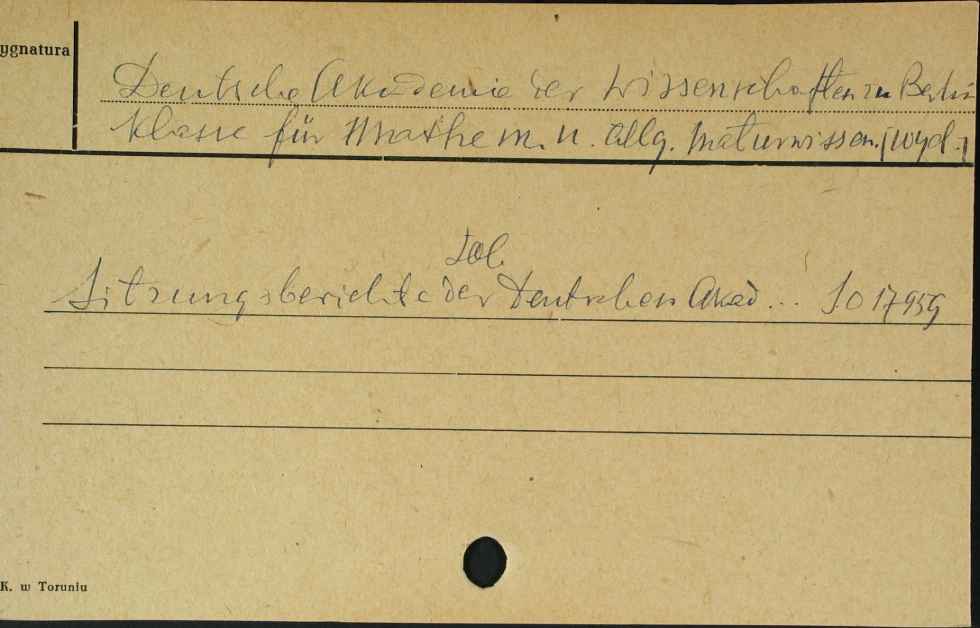 ygnatura
Deutsche Akademie der Wissenschaften zu Berlin
Klasse für Mathem. u. allg. Naturwissen. [wyd.]
Sitzungsberichte der Deutschen Akad... So 17959
K. w Toruniu